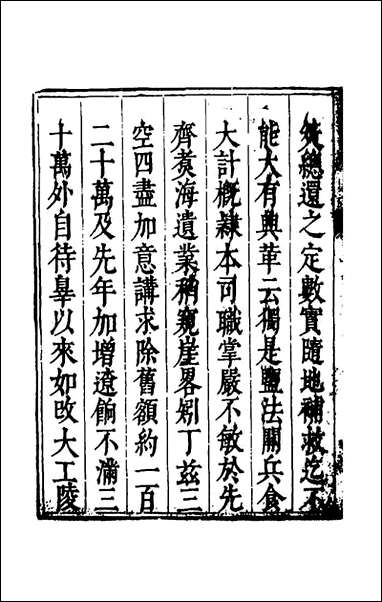 總還之定數實隨地補救迄不
能大有興革云獨是鹽法關兵食
大計概隸本司職掌嚴不敏於先
齊煑海遺業稍窺崖畧矧丁茲三
空四盡加意講求除舊額約一百
二十萬及先年加增遼餉不滿三
十萬外自待辠以來如改大工陵